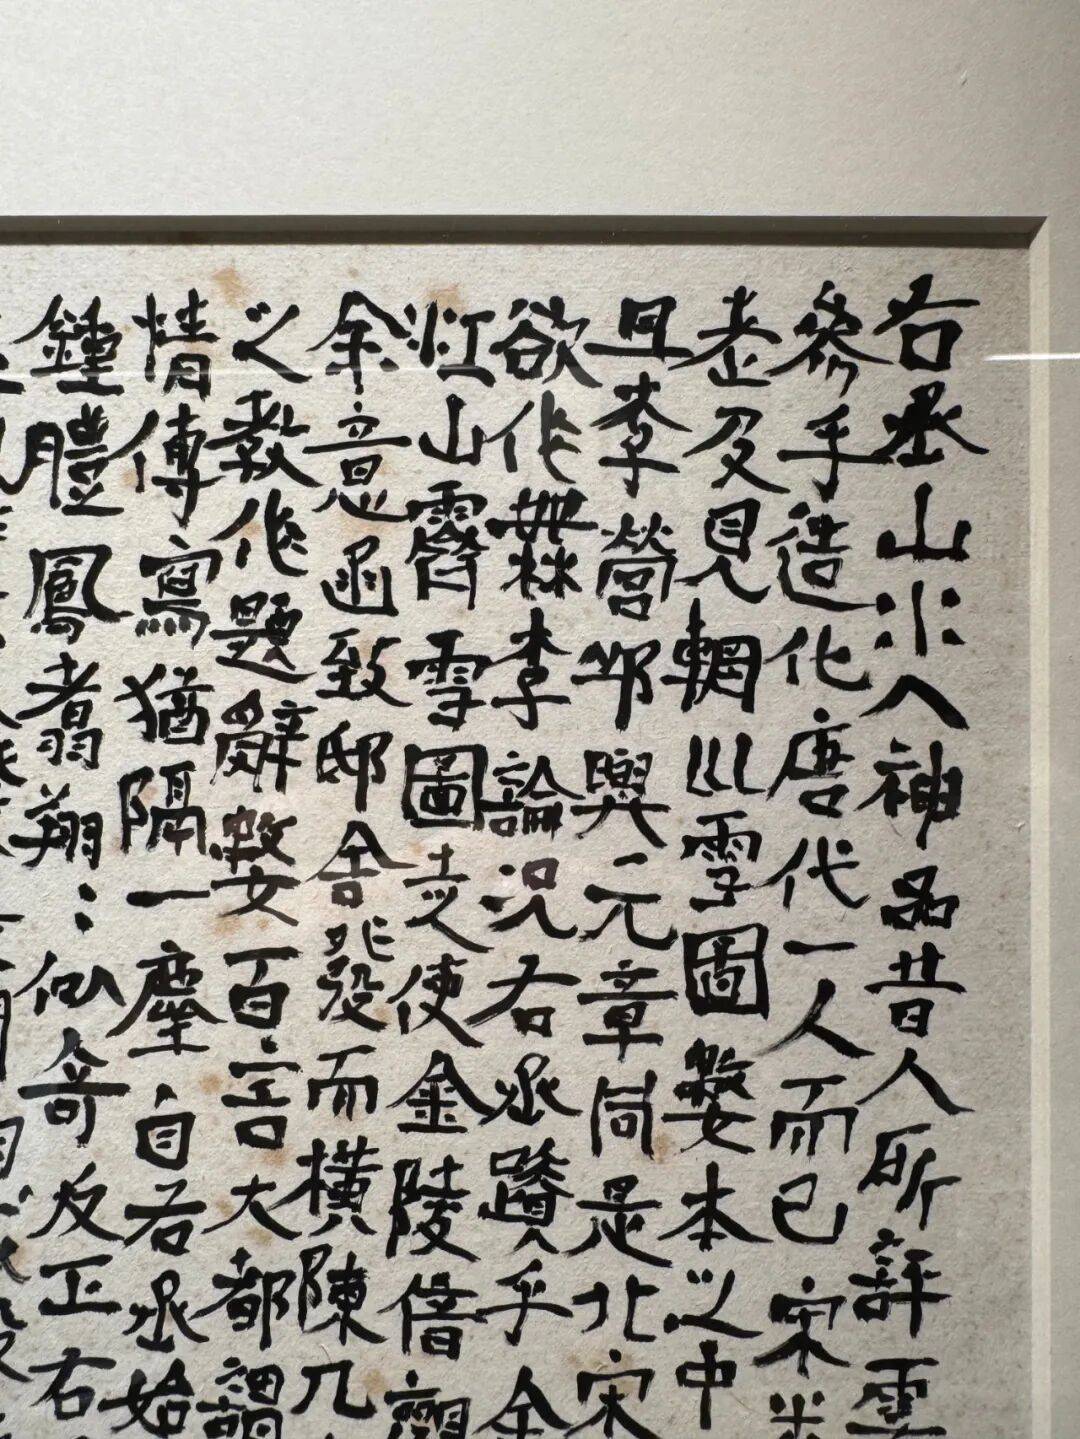 右丞山水入神品昔人所評雲
參乎造化唐代一人而已宋米
老及見輞川雪圖數本之中
且李營邱與元章同是北宋
欲作無李論況右丞蹟乎余
江山霽雪圖走使金陵借觀
余意函致邸舍發而橫陳几
之教作題辭數百言大都謂
情傳寫猶隔一塵自右丞始
鍾體鳳翥翔:似奇反正右